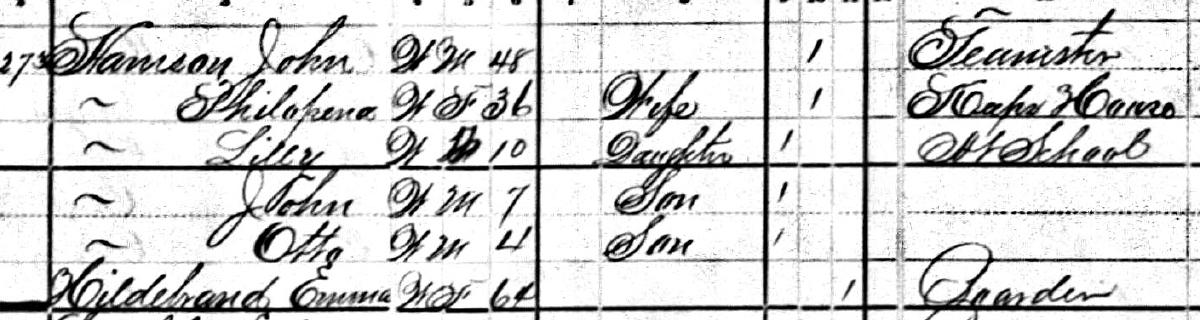 Hamson John W M 48 1 Teamster
~ Philapena W F 36 Wife 1 Keeps House
~ Lilly W 10 Daughter 1 At School
~ John W M 7 Son 1
~ Otto W M 4 Son 1
Hildebrand Emma W F 64 1 Boarder